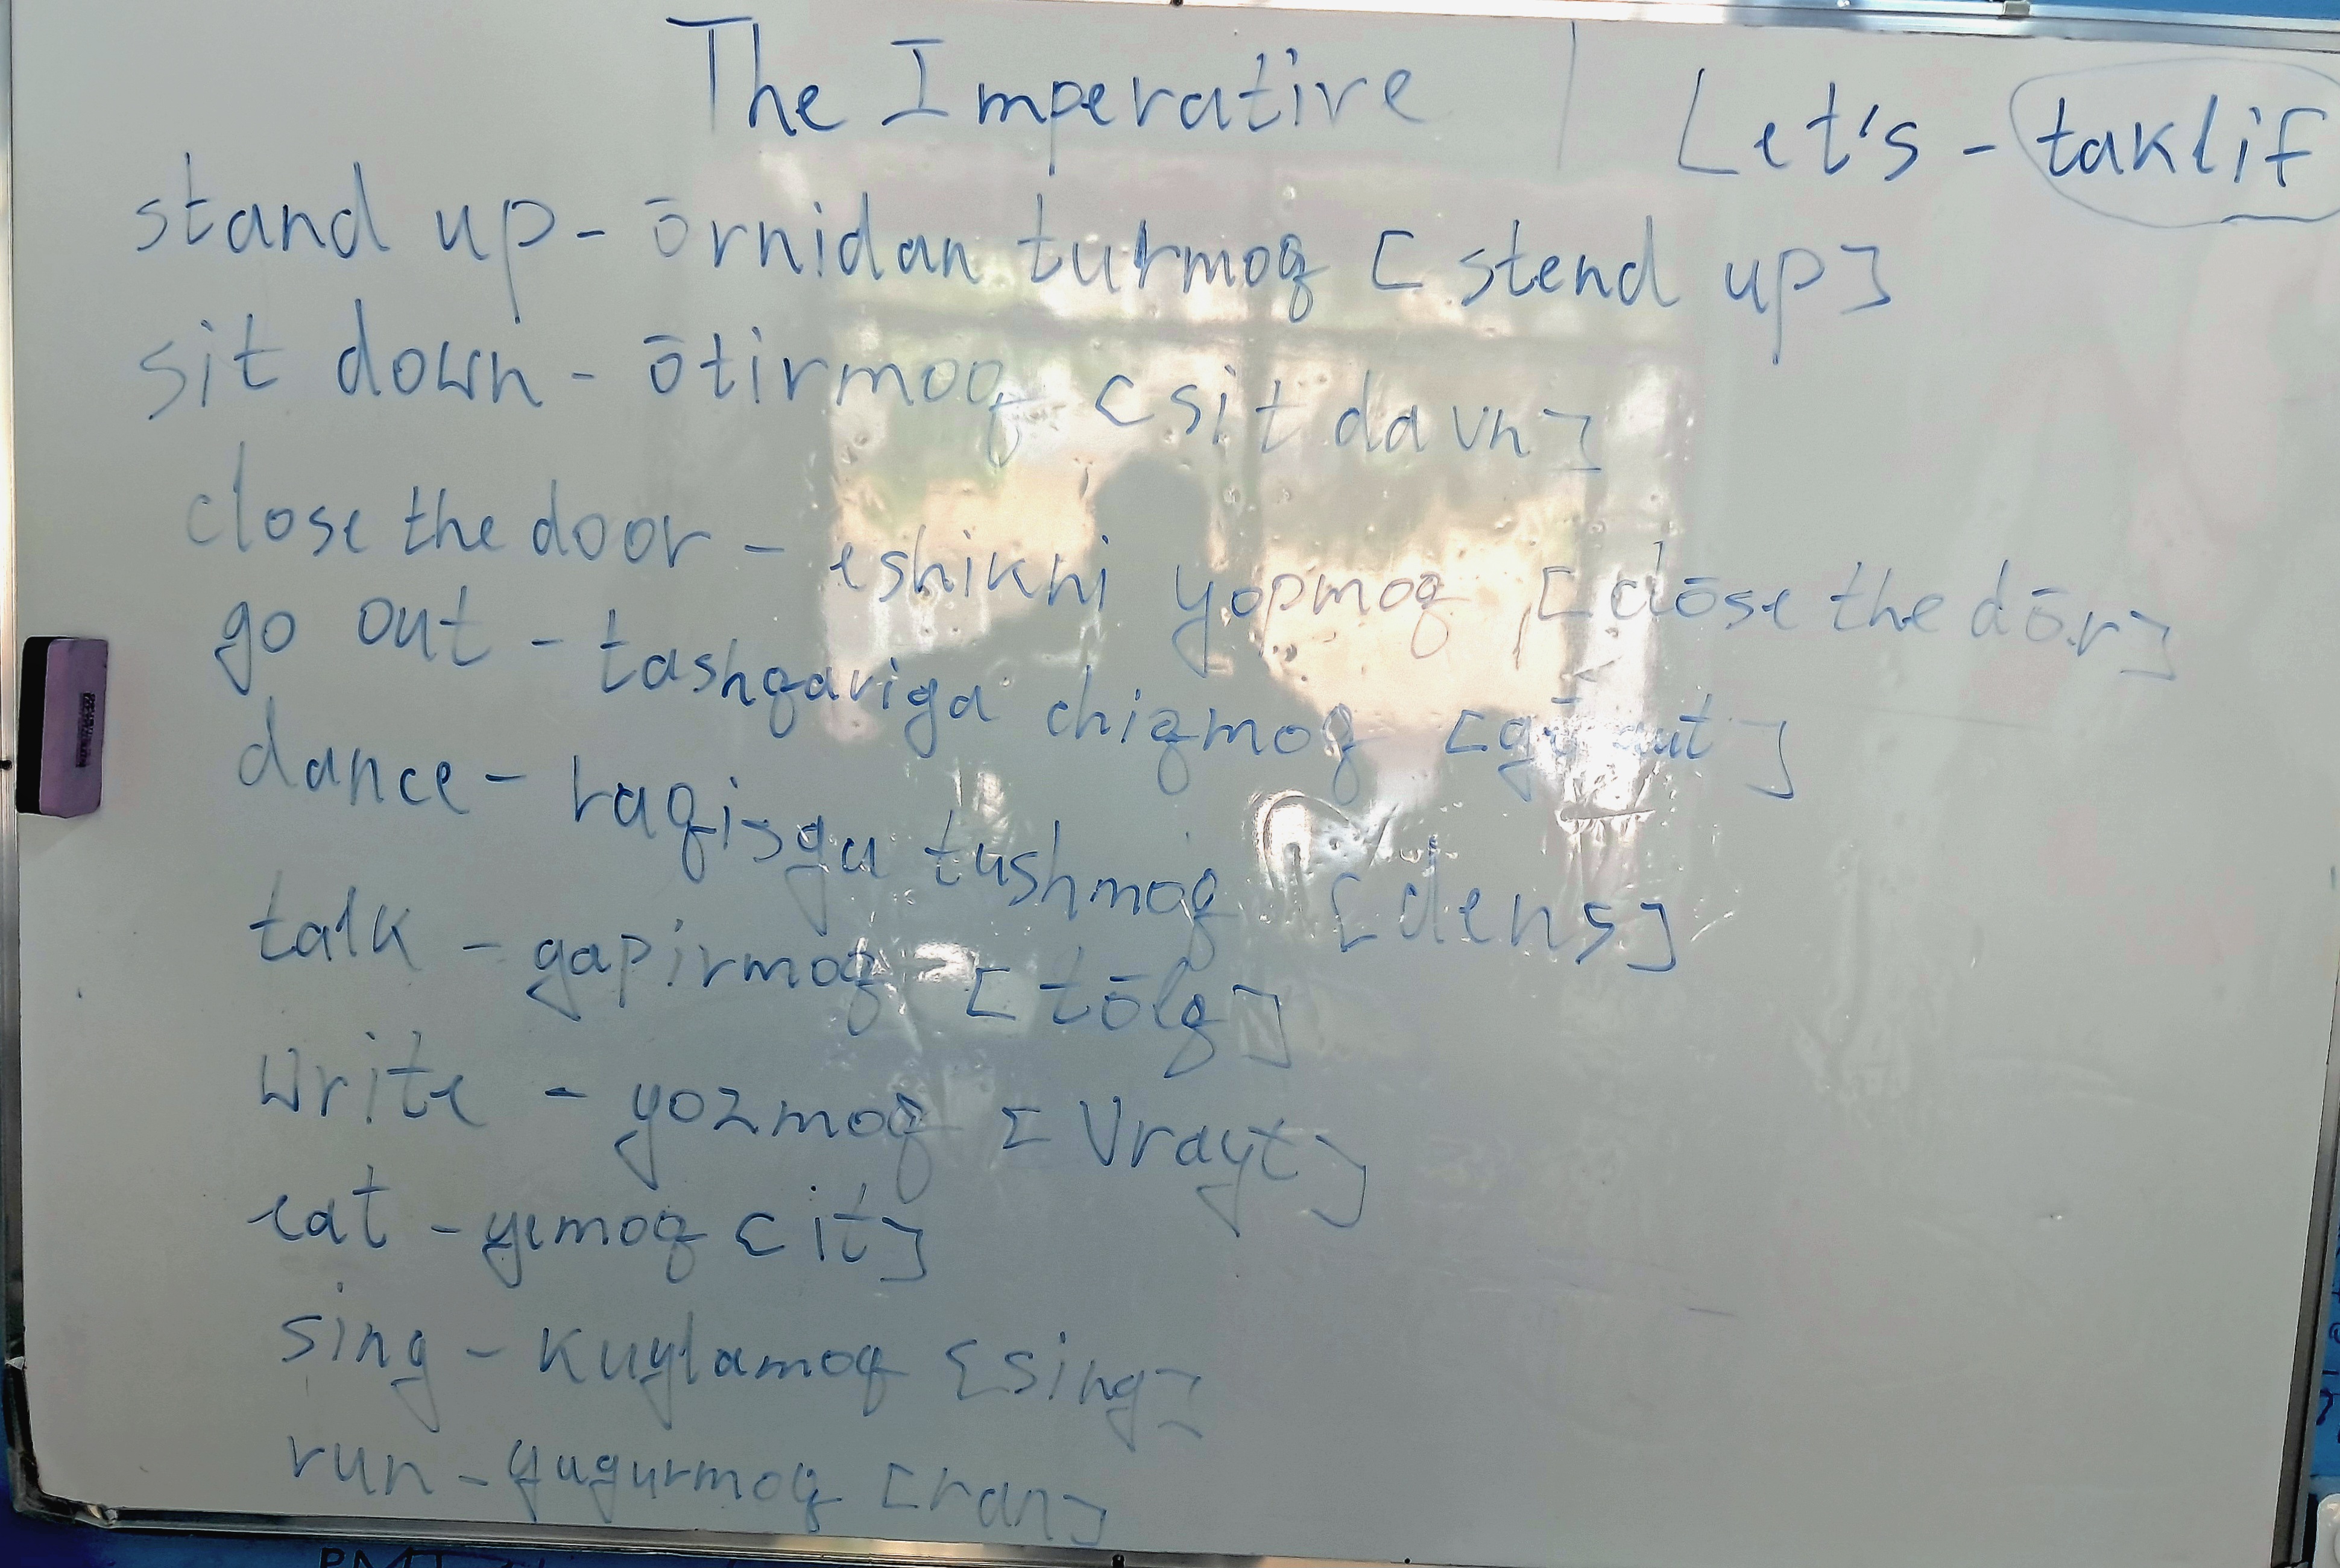 The Imperative | Let's - taklif
stand up - ōrnidan turmoq [stend up]
sit down - ōtirmoq [sit davn]
close the door - eshikni yopmoq [clōse the dōr]
go out - tashqariga chiqmoq [gō aut]
dance - raqisga tushmoq [dens]
talk - gapirmoq [tōlq]
write - yozmoq [Vrayt]
eat - yemoq [it]
sing - kuylamoq [sing]
run - yugurmoq [ran]